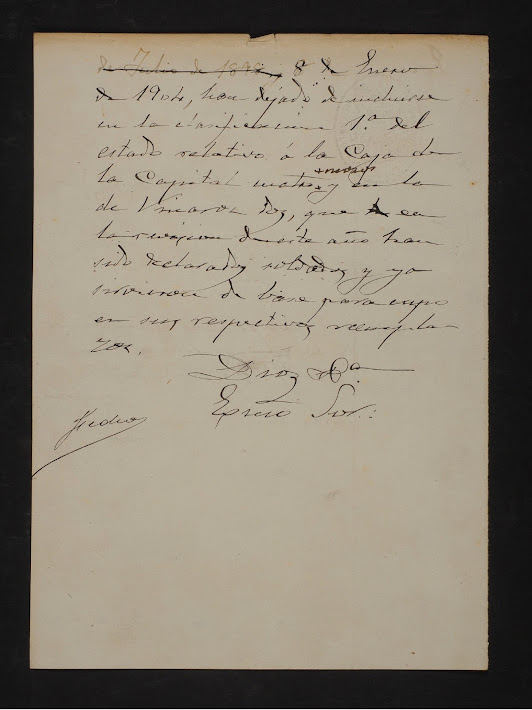 de Julio de 189, 8 de Enero
de 1904, han dejado de incluirse
en la clasificacion 1ª del
estado relativo á la Caja de
mozos
la Capital y en la
de Vinaroz dos, que en
la revision de este año han
sido declarados soldados y ya
sirvieron de base para cupo
en sus respectivos reempla
zos.
Dios &ª
Exmo Sor.: